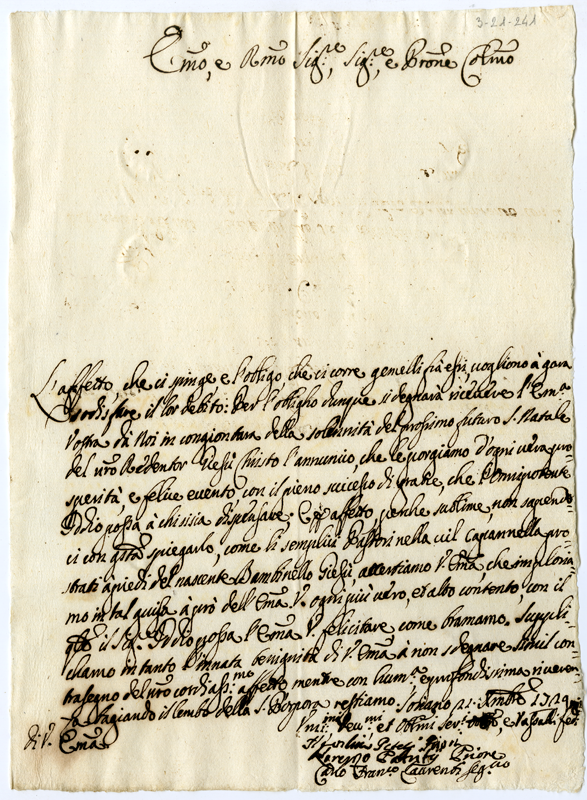 3-21-241
Emo, e Rmo Sig.re, Sig.re, e Prone Colmo
L'affetto, che ci spinge, e l'obligo, che ci corre, gemelli frà essi, vogliono à gara
sodisfare il lor debito: Per l'obligho dunque si degnarà ricevere l'Em.a
Vostra da Noi in congiontura della solennità del prossimo futuro S. Natale
del nro Redentor Giesù Christo l'annuncio, che le porgiamo d'ogni vera pro
sperità, e felice evento con il pieno successo di gratie, che l'Onnipotente
Iddio possa à chi sisia dispensare; E l'affetto, perche sublime, non sapendo
ci con spiegarlo, come li semplici Pastori nella vil Capannella pro
strati à piedi del nascente Bambinello Giesù accertiamo V. Ema, che imploria
mo in tal guisa à prò dell'Ema V. ogni più vero, et alto contento con il
il Sig. Iddio possa l'Ema V. felicitare come bramamo. Suppli
chiamo in tanto l'innata benignità di V. Ema à non sdegnare simil con
trasegno del nro cordialissmo affetto, mentre con humile, e profondissima riveren
za bagiando il lembo della S. Porpora restiamo. Soriano 21
di V. Ema
et Obmi e Vassalli
Priore
Lorenzo Priore
Carlo Franco Laurenti Seg.rio